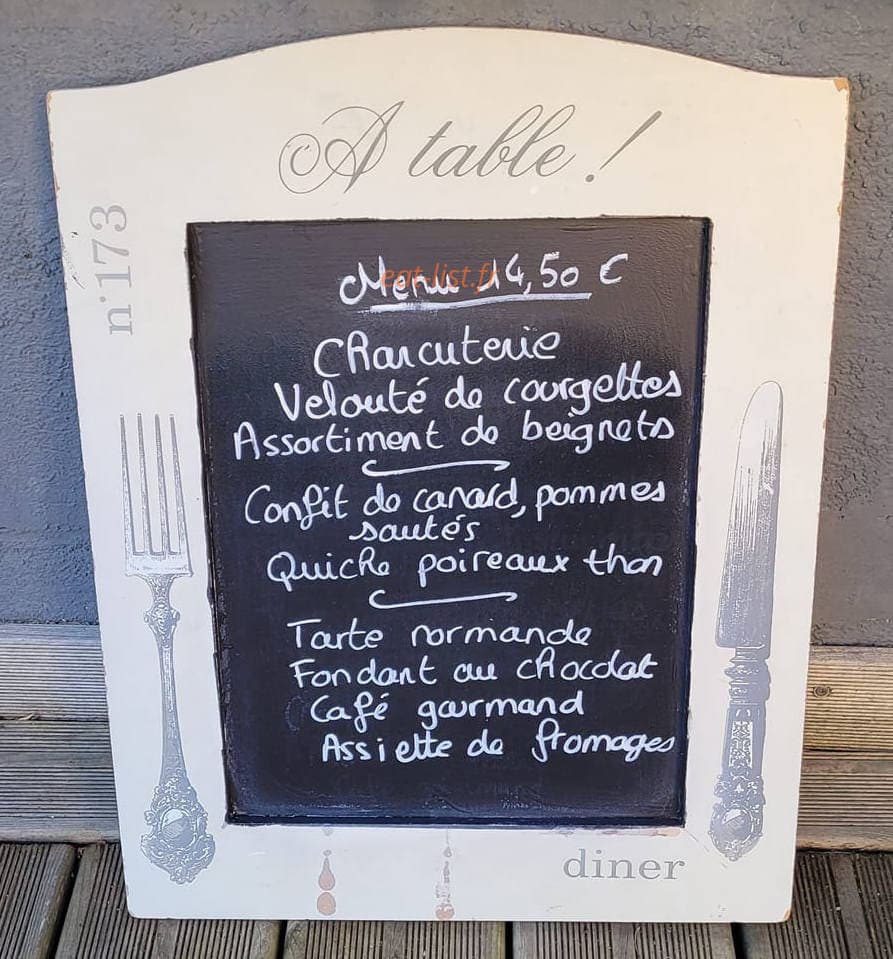 A table !
n°173
Menu 14,50 €
eat-list.fr
Charcuterie
Velouté de courgettes
Assortiment de beignets
Confit de canard, pommes
sautés
Quiche poireaux thon
Tarte normande
Fondant au chocolat
Café gourmand
Assiette de fromages
diner